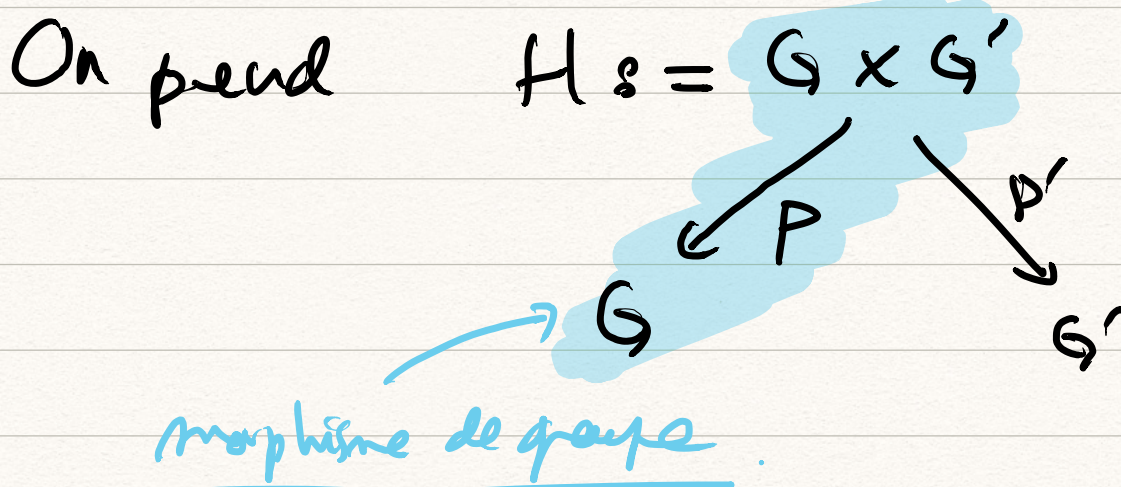 On prend H := G × G'
p p'
G
G'
morphisme de groupe.